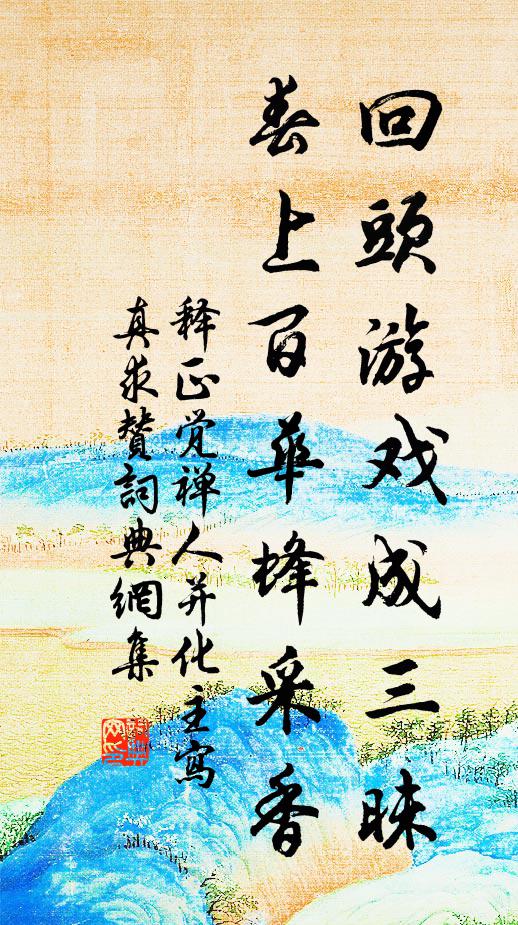 回頭游戏成三昧
春上百華蜂采香
释正觉禅人并化主寫
真求赞詞典網集